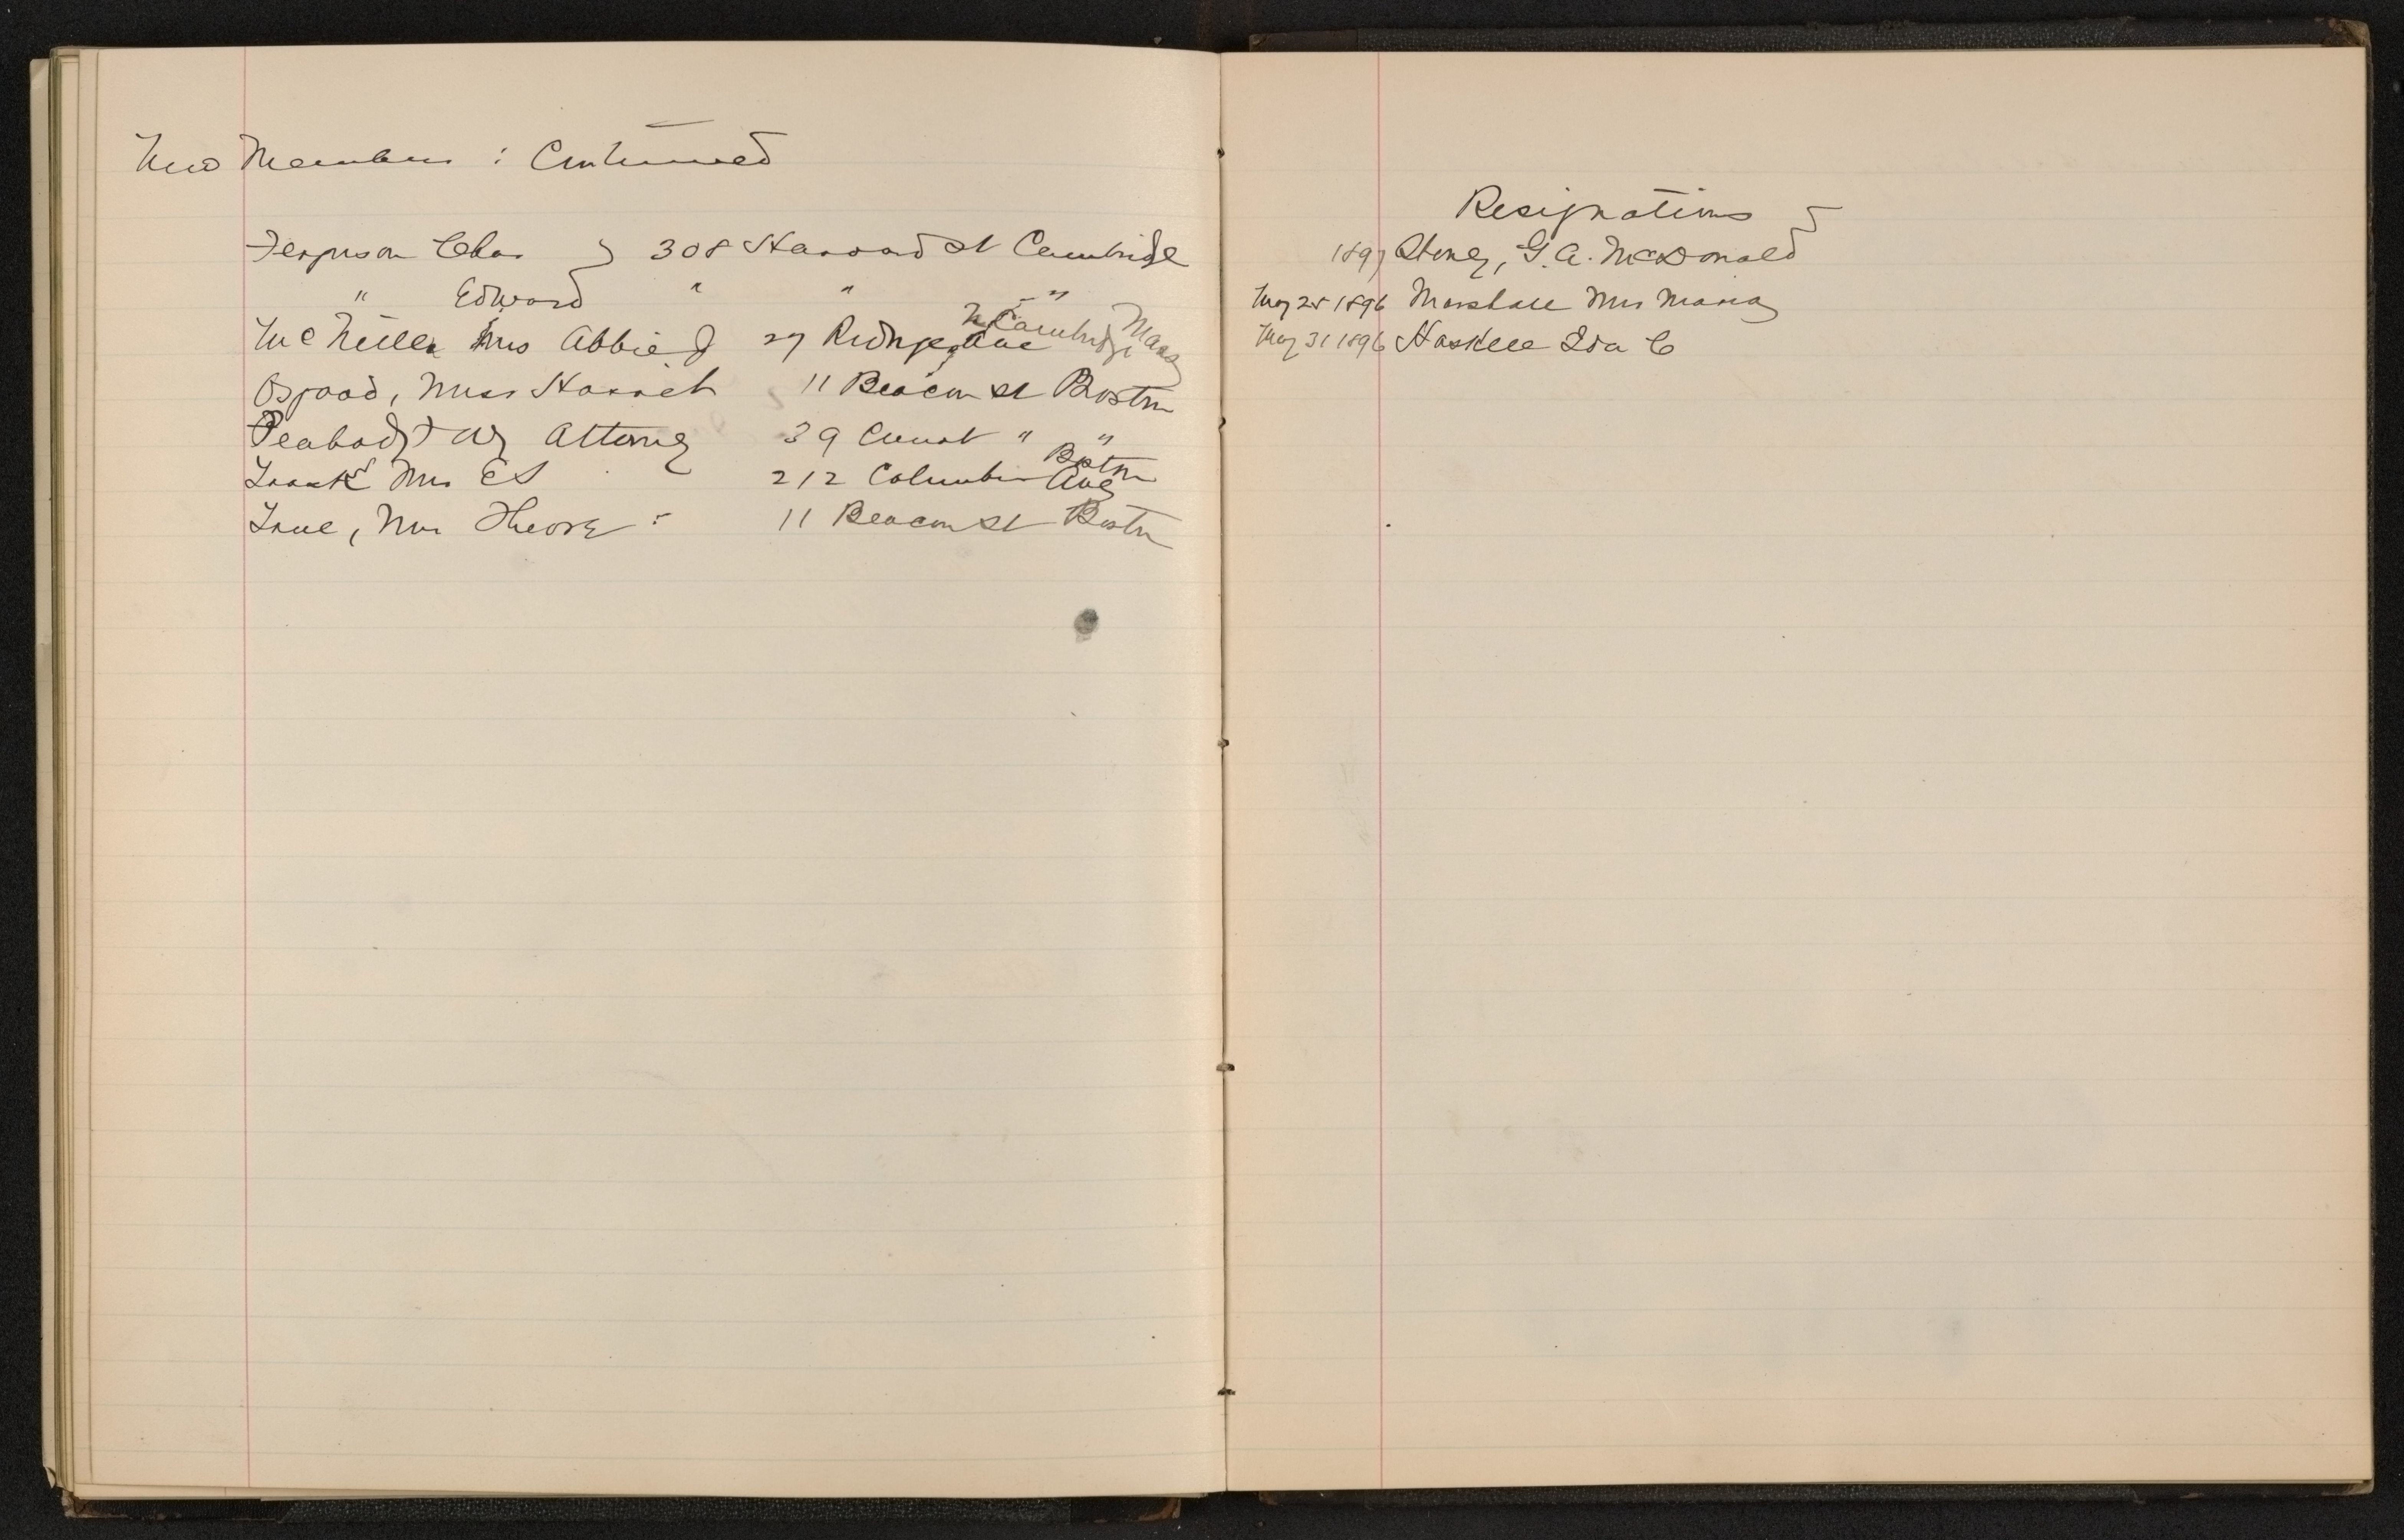 New Members : Continued
Ferguson Chas } 308 Harvard St Cambridge
" Edward " " "
McNeill Mrs Abbie J 27 Ridge Ave N Cambridge Mass
Osgood, Miss Harriet 11 Beacon St Boston
Peabody Atty Attorney 39 Court " "
Mrs E S 212 Columbus Ave Boston
True, Mrs 11 Beacon St Boston
Resignations
1897 Stone, G. A. McDonald
May 25 1896 Marshall Mrs Maria
May 31 1896 Haskell Ida C